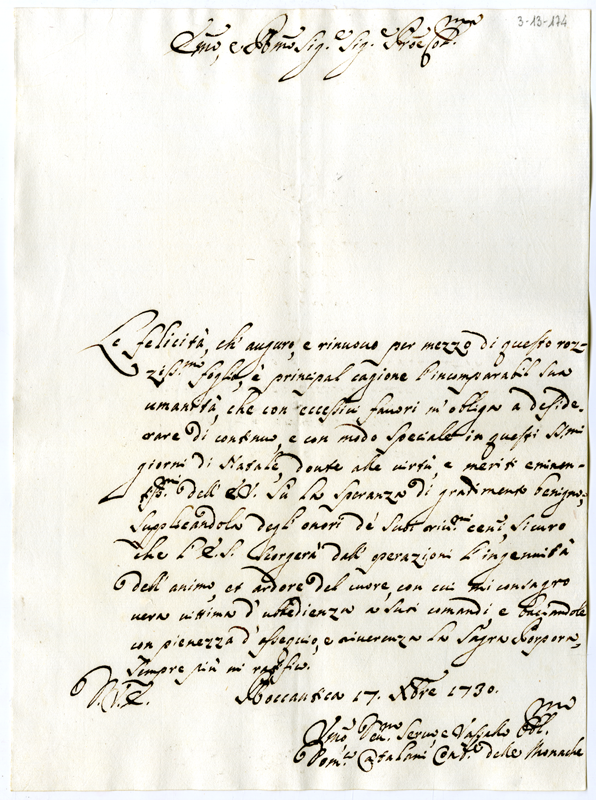 3-13-174
Emo, e Rmo Sig.e Sig.e Prōe Col.mo
Le felicità, ch' auguro, e rinuovo per mezzo di questo roz-
ziss.mo foglio, è principal cagione l'incomparabil sua
umanità, che con eccessivi favori m'obliga a deside-
rare di continuo, e con modo speciale in questi SS.mi
giorni di Natale, dovute alle virtù, e meriti eminen-
tiss.mi dell' E.V. Sù la speranza di gradimento benigno,
supplicandola degl'onori de' suoi cenni, sicuro
che l'E.S. scorgerà dall'operazioni l'ingenuità
dell'animo, et ardore del cuore, con cui mi consagro
vera vittima d'ubbidienza a suoi comandi, e baciandole
con pienezza d'ossequio, e riverenza la Sagra Porpora,
sempre più mi rassifico.
V.E. Roccantica 17. Xbre 1730.
Umo Dev.mo Servo, e Vassallo Obl.mo
Dom.co Catalani Conf.re delle Monache